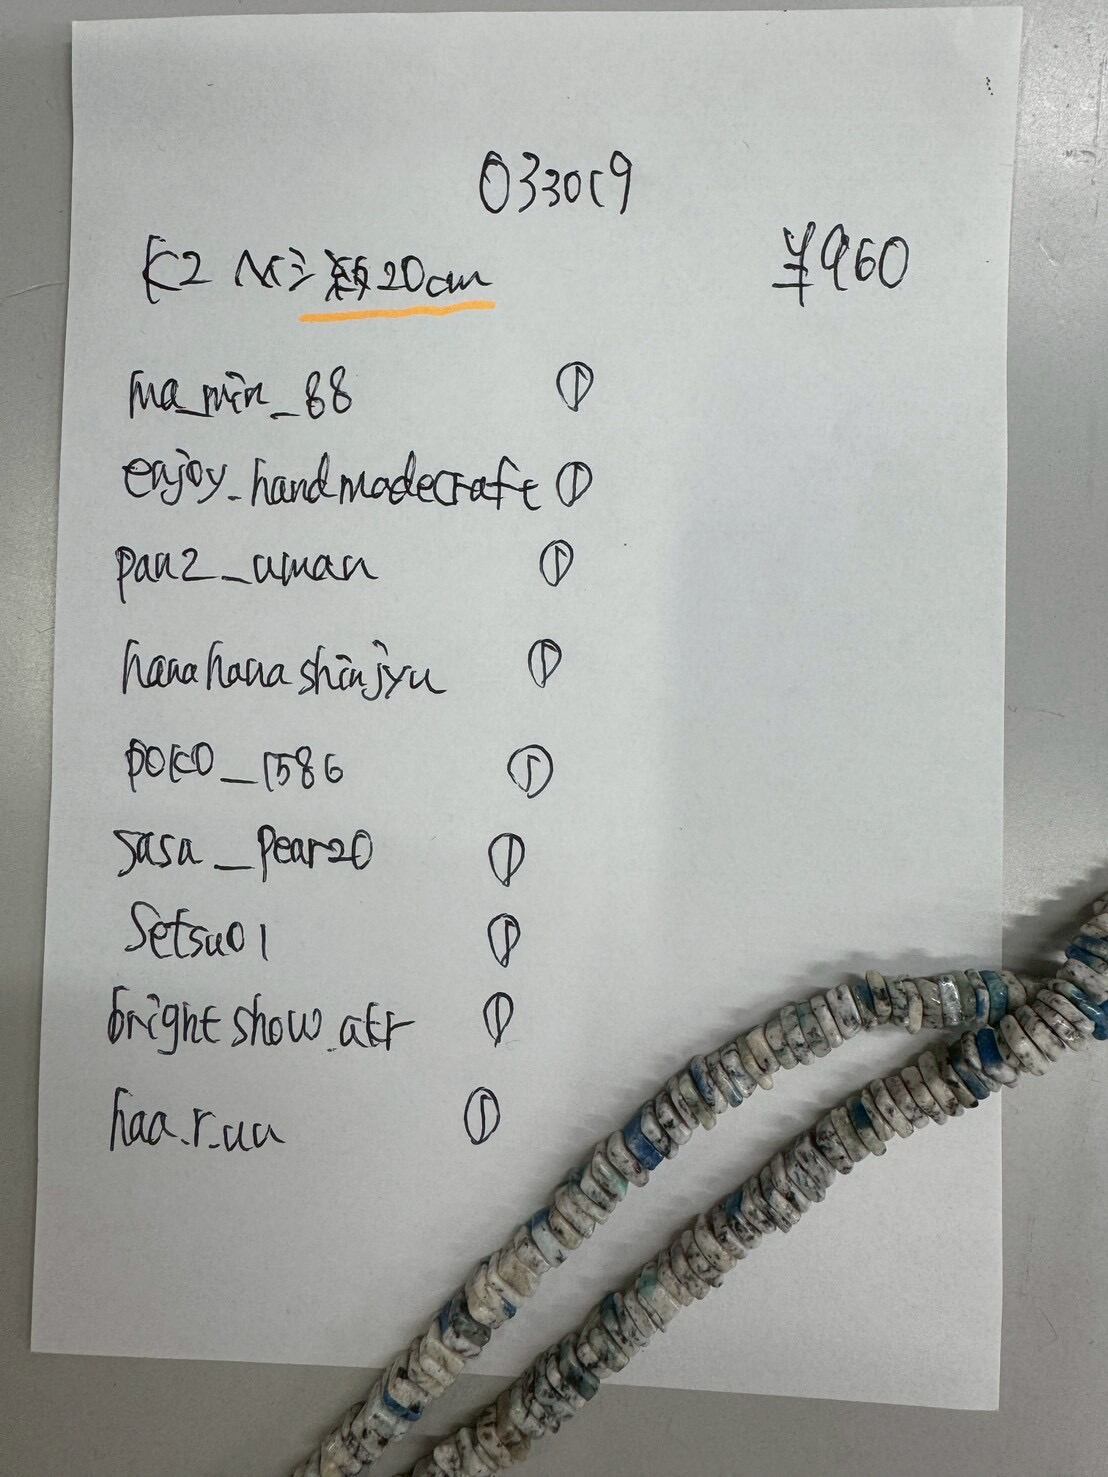 033019
K2 ヘイシ 約20cm
¥960
ma_min_88 ①
enjoy_handmadecraft ①
pan2_uman ①
hanahanashinjyu ①
poko_1586 ①
sasa_pear20 ①
Setsu01 ①
brightshow_atr ①
haa.r.uu ①